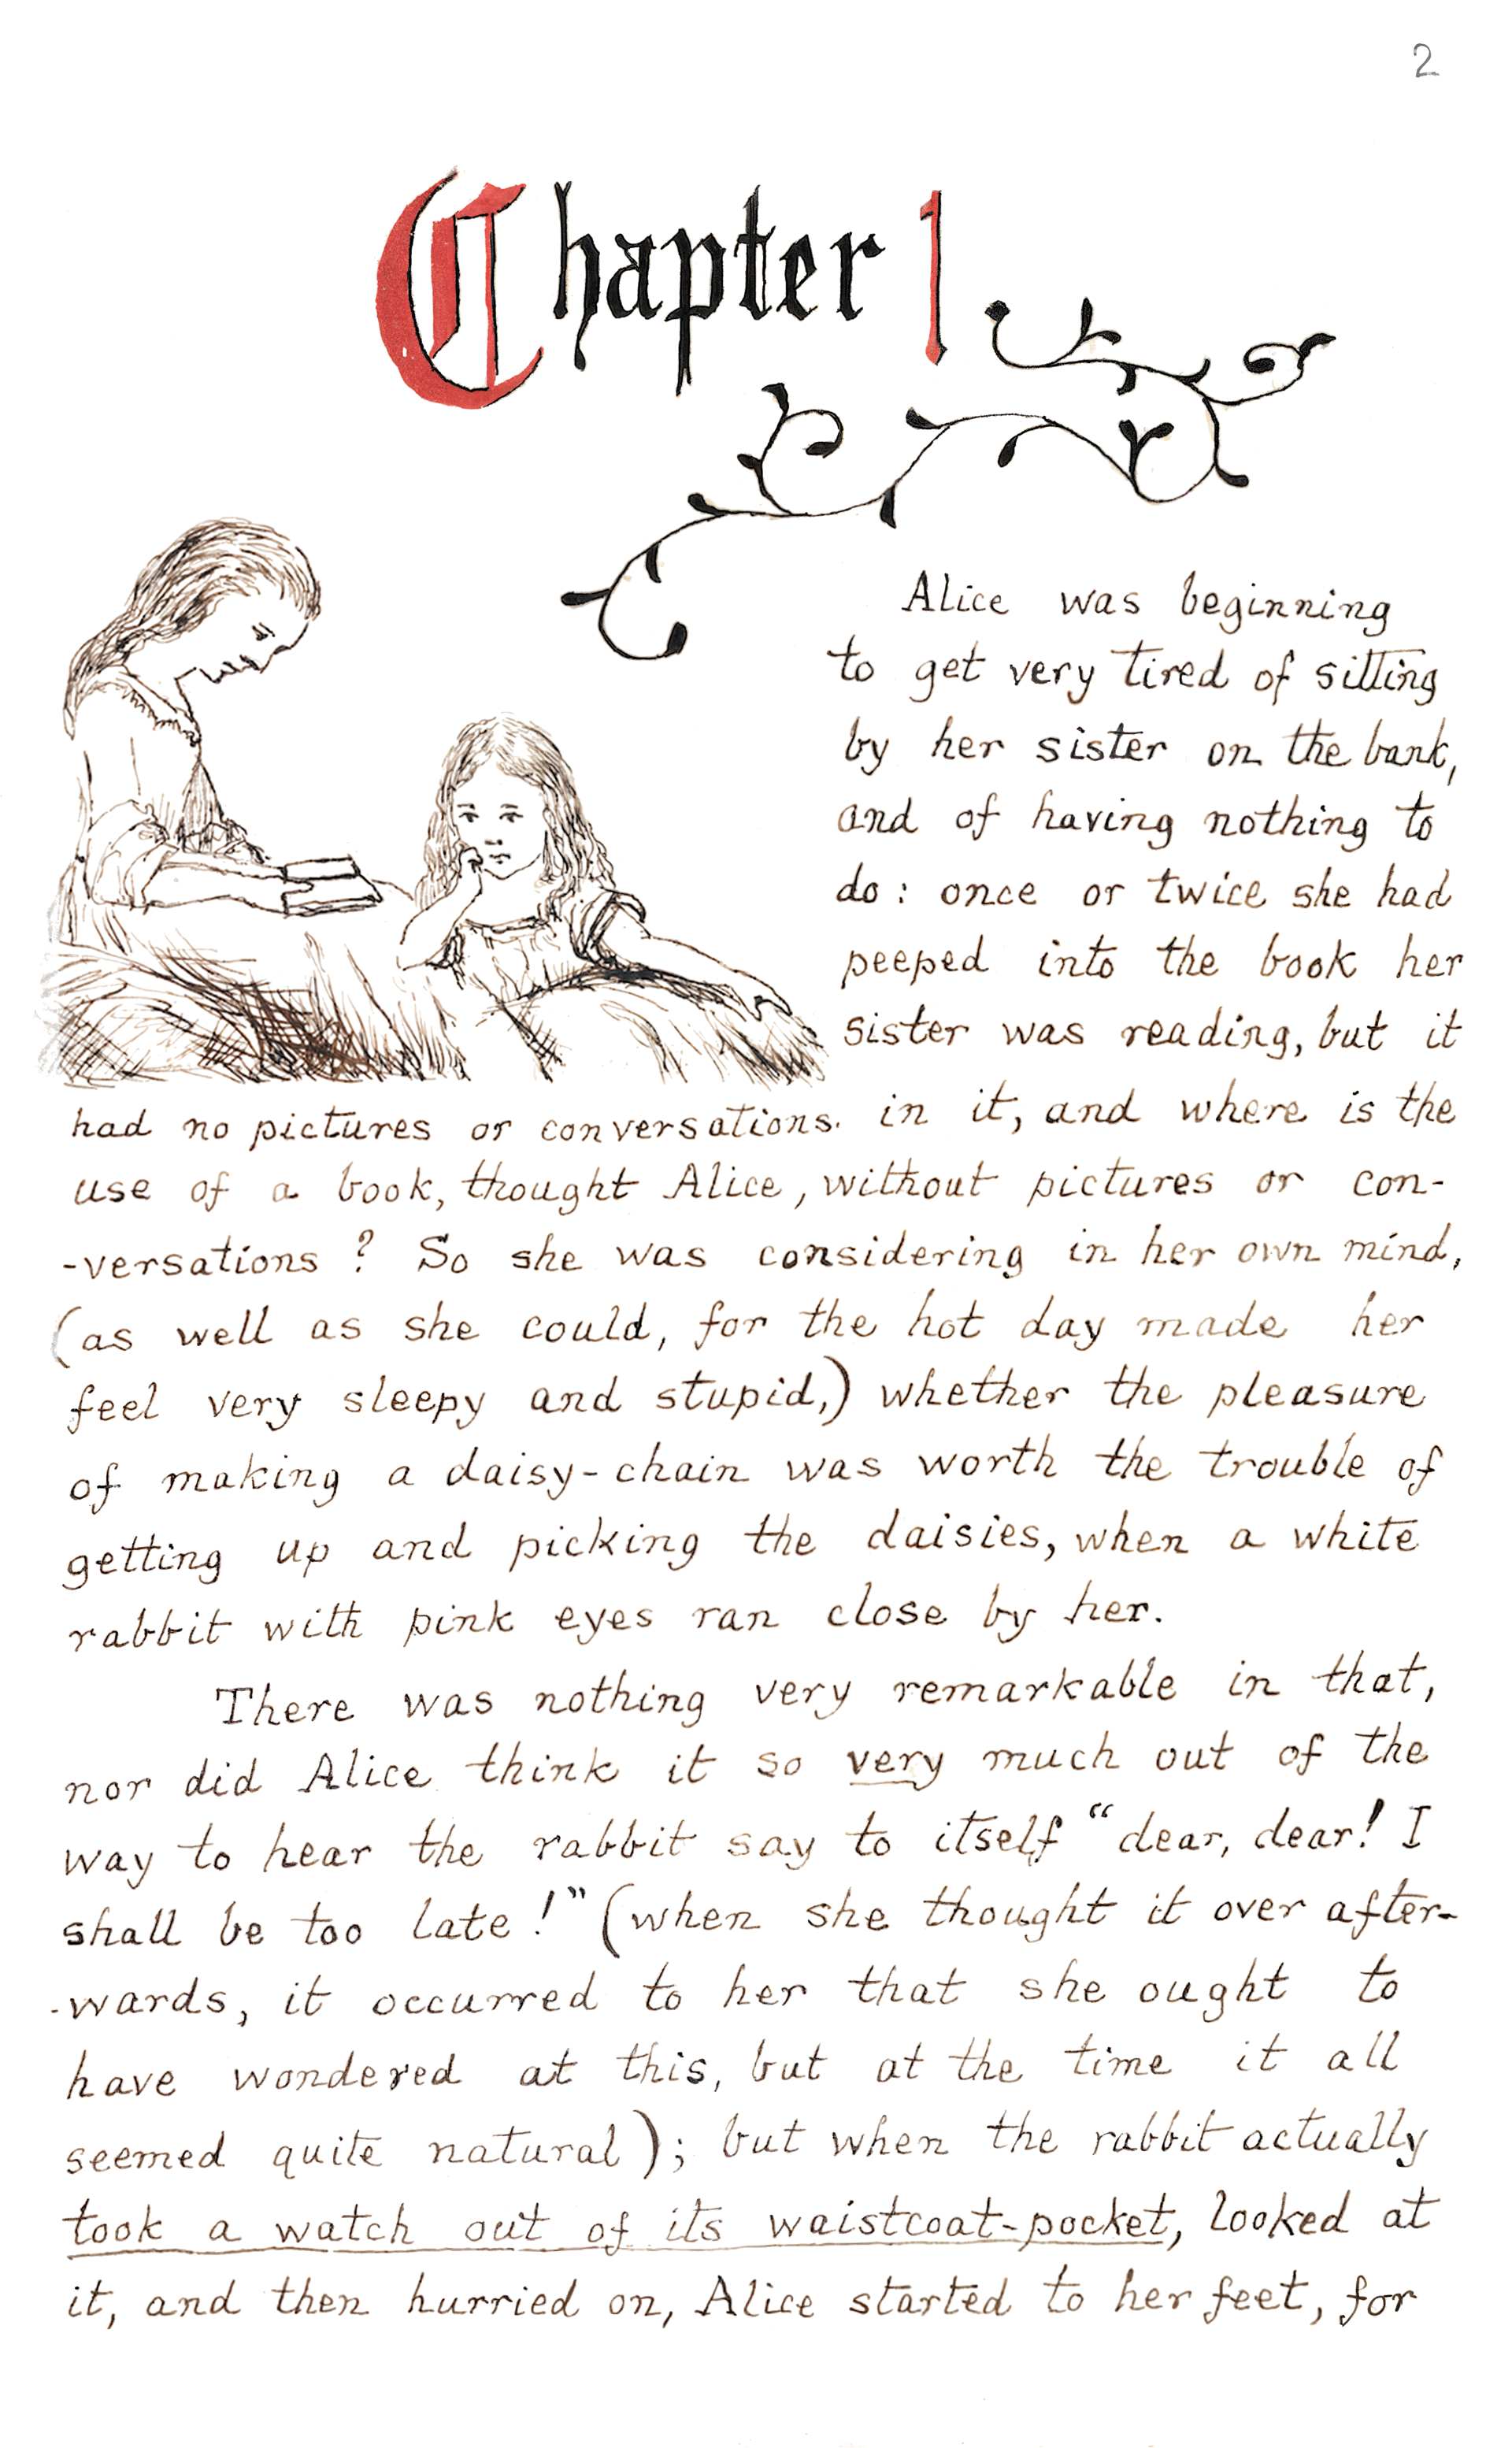 2
Chapter 1
Alice was beginning
to get very tired of sitting
by her sister on the bank,
and of having nothing to
do: once or twice she had
peeped into the book her
sister was reading, but it
had no pictures or conversations. in it, and where is the
use of a book, thought Alice, without pictures or con-
-versations? So she was considering in her own mind,
(as well as she could, for the hot day made her
feel very sleepy and stupid,) whether the pleasure
of making a daisy-chain was worth the trouble of
getting up and picking the daisies, when a white
rabbit with pink eyes ran close by her.
There was nothing very remarkable in that,
nor did Alice think it so very much out of the
way to hear the rabbit say to itself "dear, dear! I
shall be too late!" (when she thought it over after-
-wards, it occurred to her that she ought to
have wondered at this, but at the time it all
seemed quite natural); but when the rabbit actually
took a watch out of its waistcoat-pocket, looked at
it, and then hurried on, Alice started to her feet, for